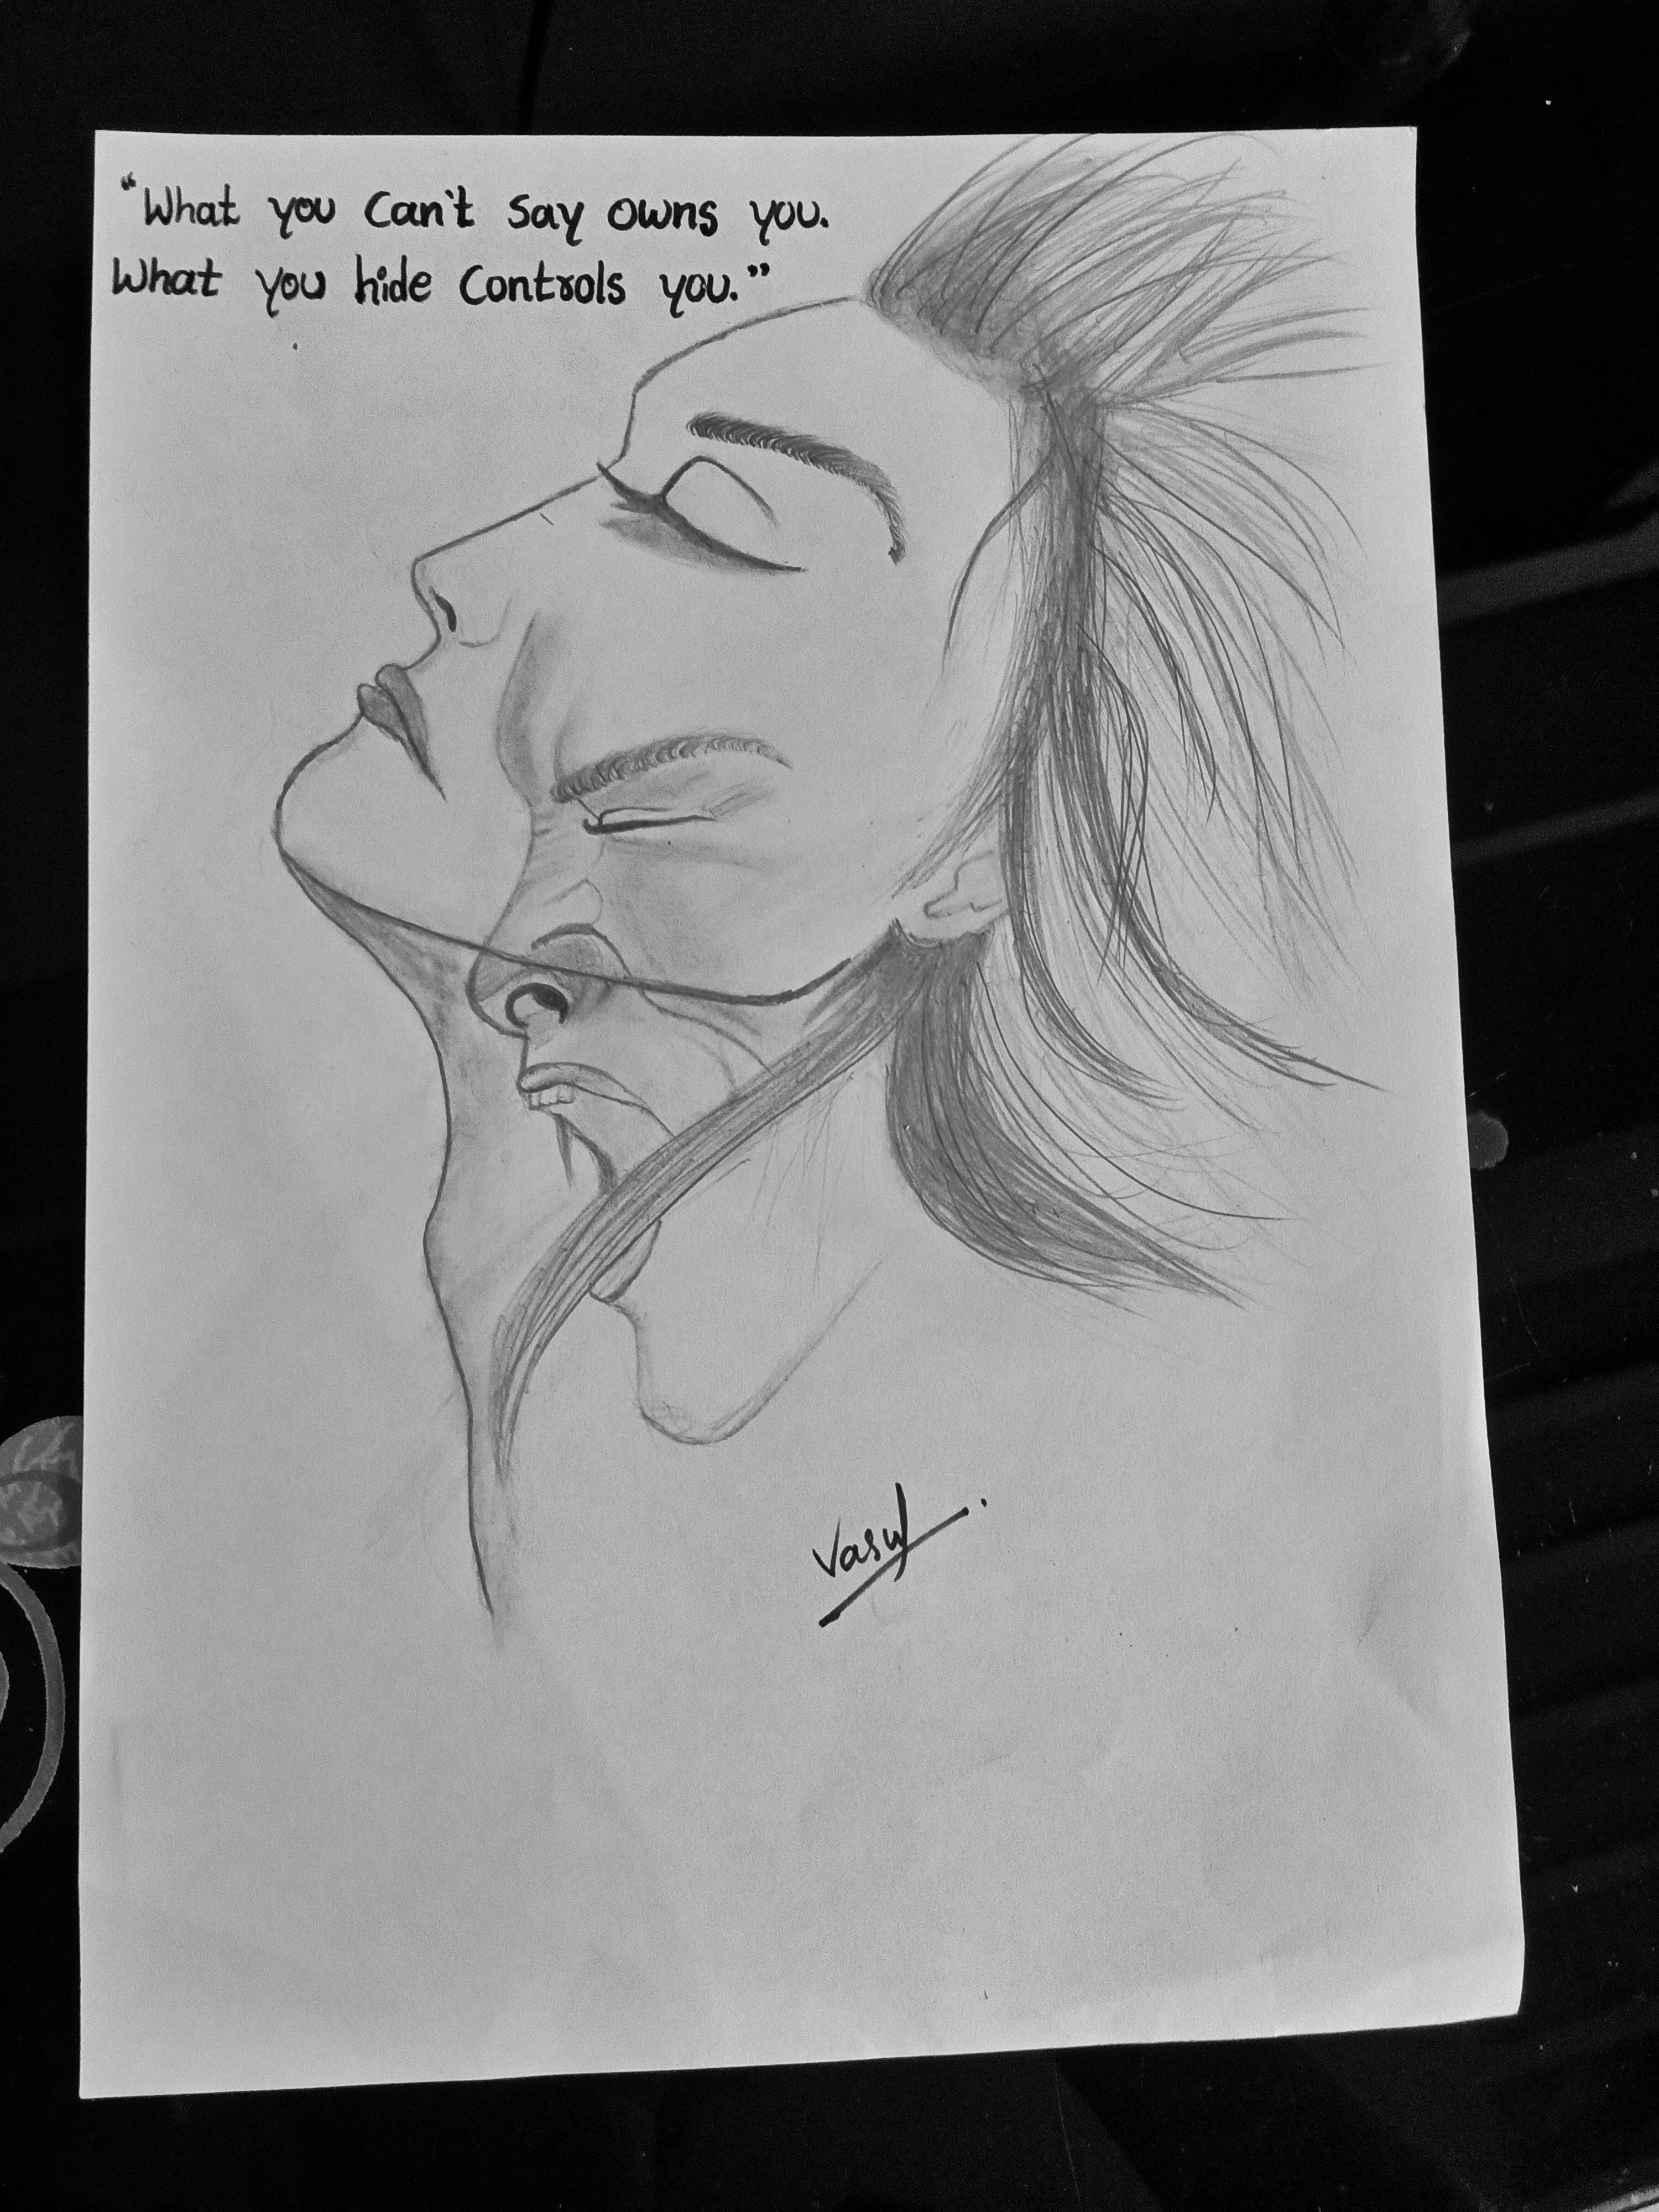 "What you can't say owns you.
What you hide controls you."
Vasu